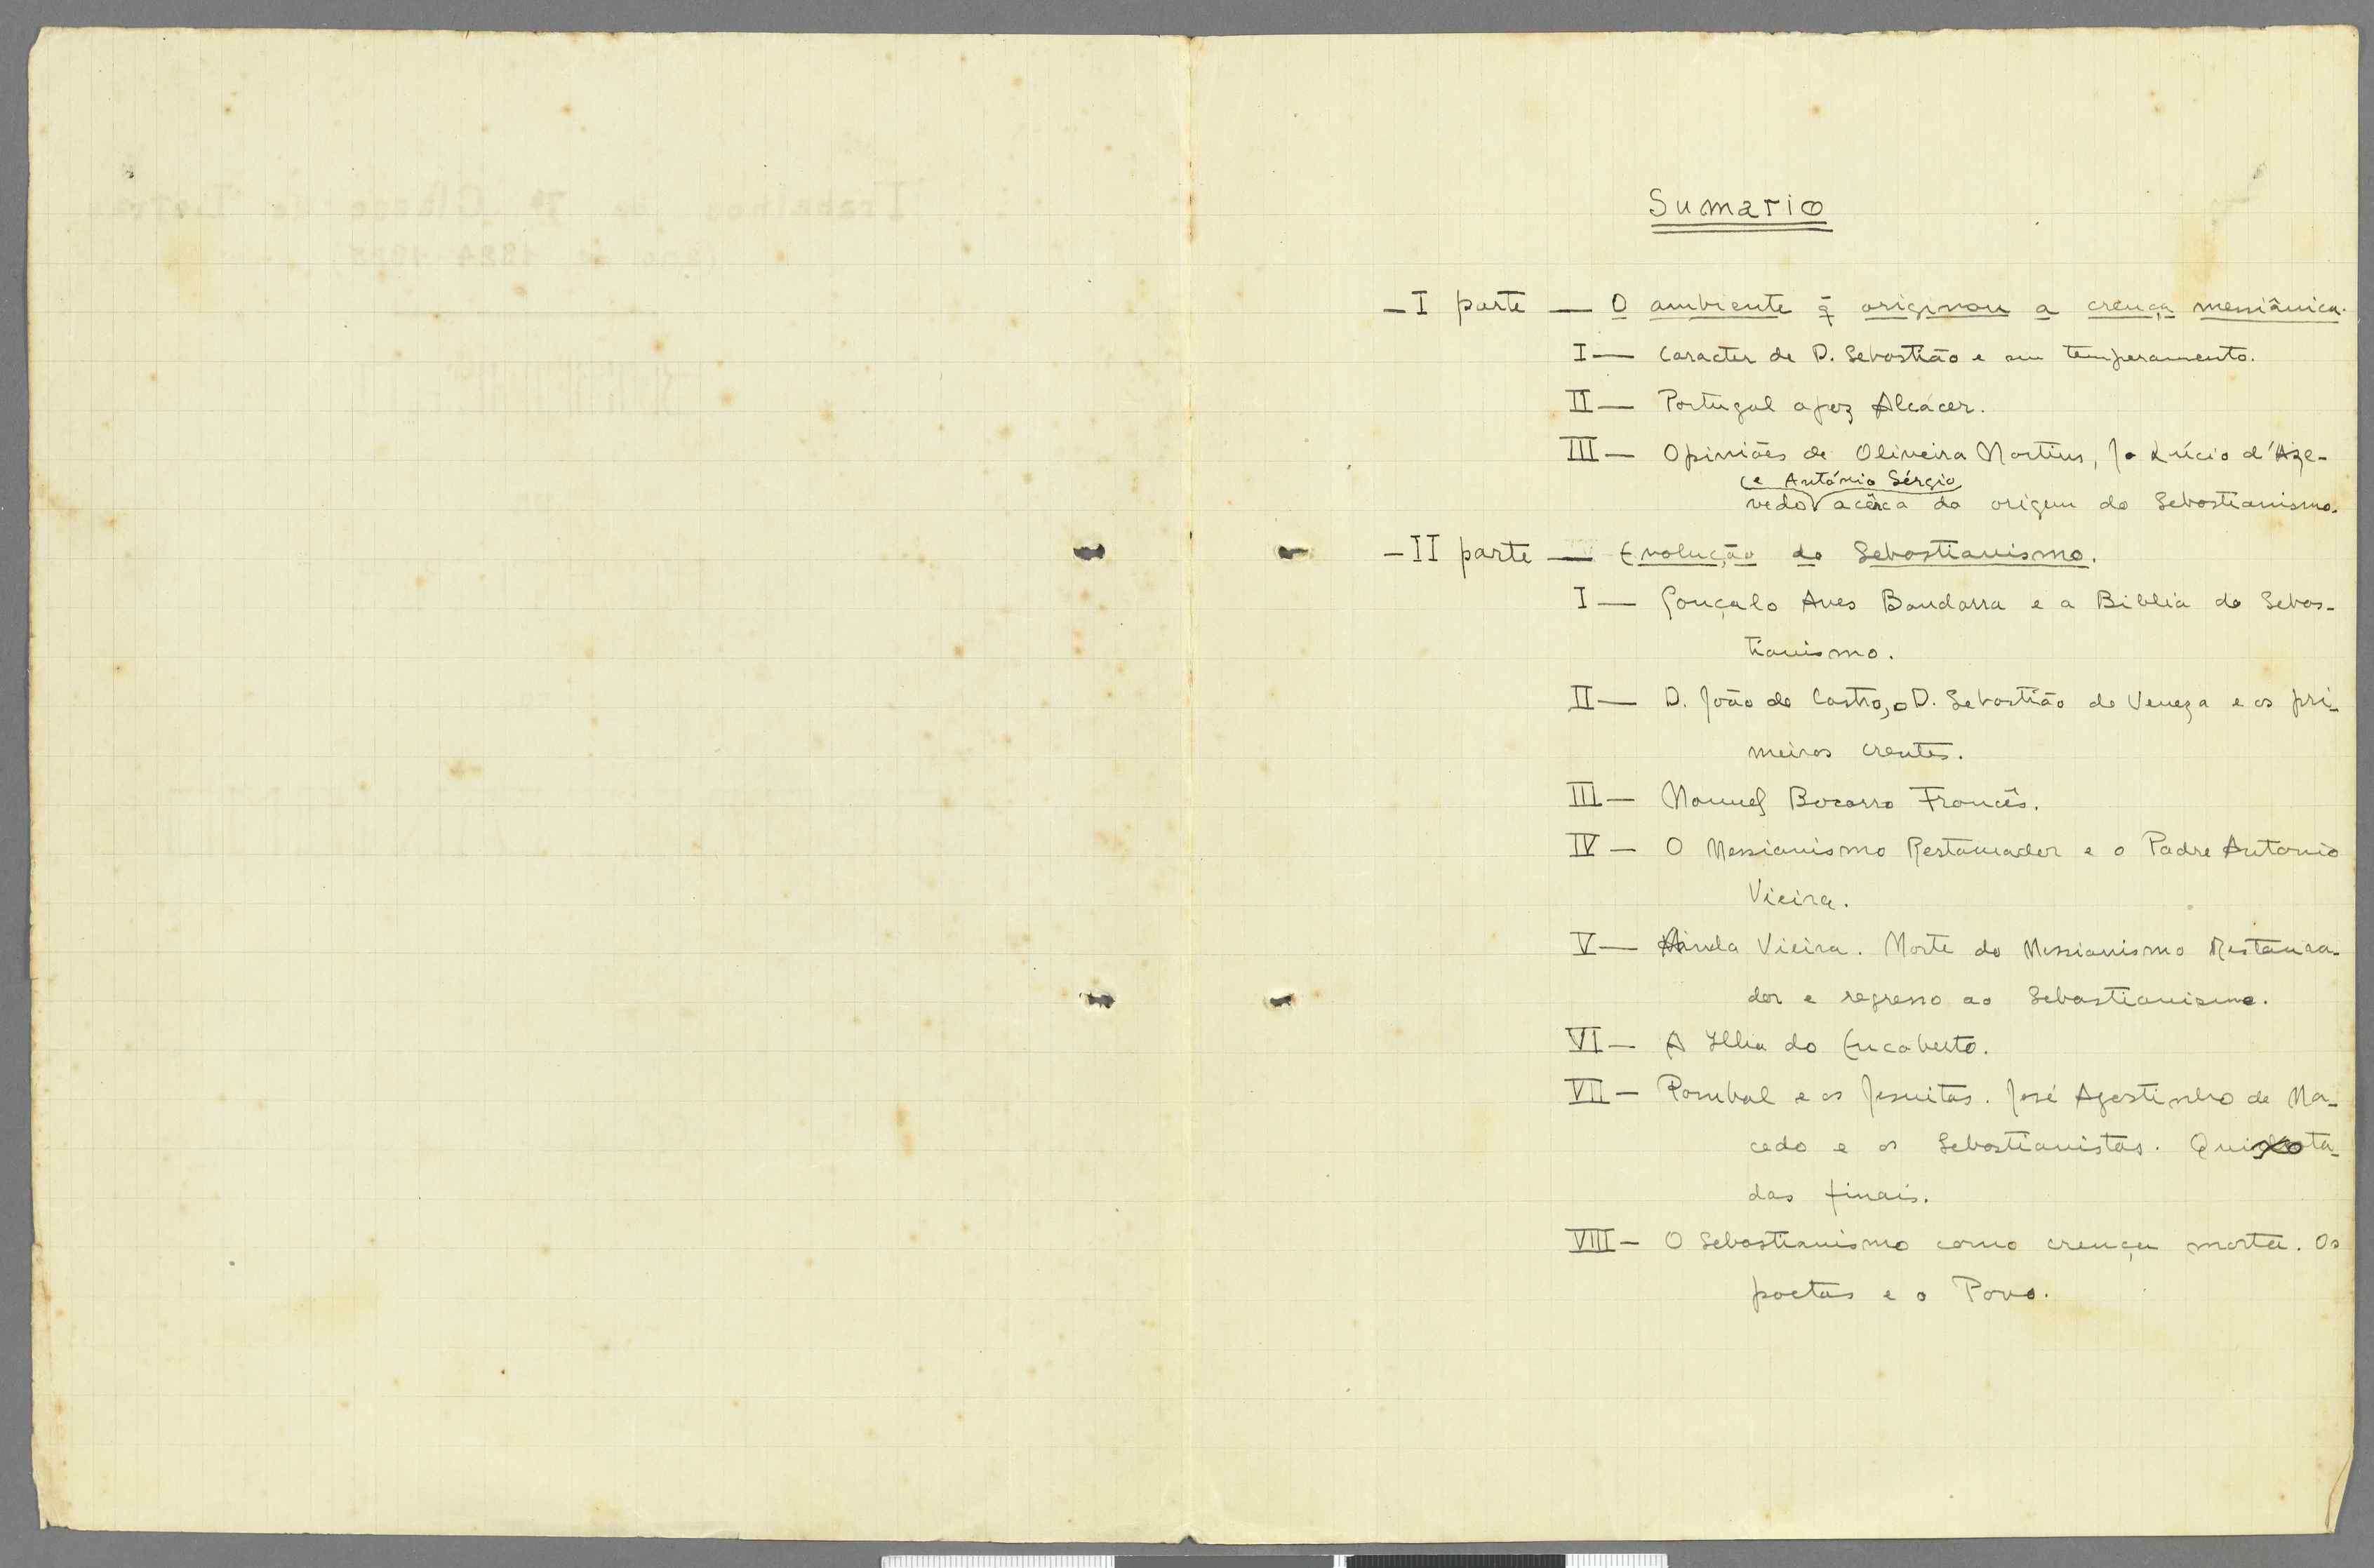 Sumario
- I parte — O ambiente q̃ originou a crença messiânica.
I — Caracter de D. Sebastião e seu temperamento.
II — Portugal apoz Alcácer.
III — Opiniões de Oliveira Martins, J. Lúcio d'Aze-
(e António Sérgio)
vedo acêrca da origem do Sebastianismo.
- II parte — Evolução do Sebastianismo.
I — Gonçalo Anes Bandarra e a Biblia do Sebas-
tianismo.
II — D. João de Castro, o D. Sebastião de Veneza e os pri-
meiros crentes.
III — Manuel Bocarro Francês.
IV — O Messianismo Restaurador e o Padre Antonio
Vieira.
V — Ainda Vieira. Morte do Messianismo Restaura-
dor e regresso ao Sebastianismo.
VI — A Ilha do Encoberto.
VII — Pombal e os Jesuitas. José Agostinho de Ma-
cedo e os Sebastianistas. Quixota-
das finais.
VIII — O Sebastianismo como crença morta. Os
poetas e o Povo.